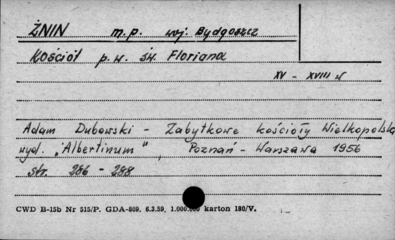 ŻNIN m.p. woj. Bydgoszcz
Kościół p.w. św. Floriana
XV - XVIII w
Adam Dubowski - Zabytkowe kościoły Wielkopolska
wyd. „Albertinum" Poznań - Warszawa 1956
str. 286 - 288
CWD B-15b Nr 515/P. GDA-809. 6.3.59. 1.000.000 karton 180/V.